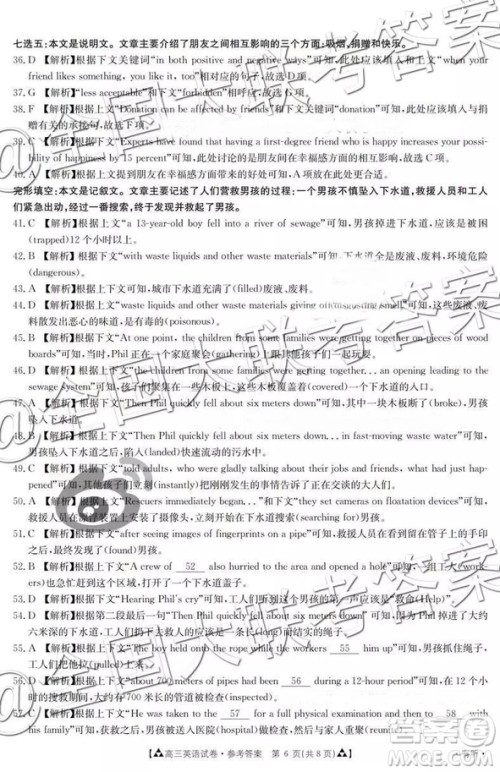 七选五:本文是说明文。文章主要介绍了朋友之间相互影响的三个方面:吸烟、捐赠和快乐。
36. D 【解析】根据下文关键词“in both positive and negative ways”可知,此处应该填入人与其相关的D项“when your
friend likes something, you like it, too”相对应。
37. G 【解析】根据“less acceptable”和下文“forbidden”相对应可知,此处选G项。
38. F 【解析】根据上文“Donation can be affected by friends”和下文关键词“donation”可知,此处应该填人与捐
赠有关的承接句,故选F项。
39. C 【解析】根据上文“Experts have found that having a first-degree friend who is happy increases your possi-
bility of happiness by 15 percent”可知,此处讨论的是朋友间在幸福感方面的相互影响,故选C项。
40. A 【解析】根据上文提到朋友在幸福感方面的相互影响可知,此处应该选A项。
完形填空:本文是记叙文。文章主要记述了人们营救男孩的过程:一个男孩不慎坠入下水道,救援人员和工人
们紧急出动,经过一番搜索,终于发现并救起了男孩。
41. C 【解析】根据上文“a 13-year-old boy fell into a river of sewage”可知,男孩掉进下水道,应该是被困
(trapped)12个小时以上。
42. D 【解析】根据下文“with waste liquids and other waste materials”可知,下水道都是废液、废料,环境危险
(dangerous)。
43. D 【解析】根据上下文可知,城市下水道充满了(filled)废液、废料。
44. D 【解析】根据上文“waste liquids and other waste materials giving off disgusting smell”可知,这些废液、废
料散发出恶心的味道,是有毒的(poisonous)。
45. B 【解析】根据下文“At one point, the children from some families were getting together on pieces of wood
boards”可知,当时,Phil正在一个家庭聚会(gathering)上跟其他孩子们一起玩耍。
46. B 【解析】根据下文“the children from some families were getting together... an opening leading to the
sewage system”可知,孩子们聚集在一些木板上,木板覆盖(covering)在下水道上。
47. A 【解析】根据下文“Then Phil quickly fell about six meters down”可知,其中一块木板断了(broke),男孩
坠入下水道。
48. B 【解析】根据上下文“Then Phil quickly fell about six meters down... in fast-moving waste water”可知,男
孩坠入下水道之后,陷入(landed)快速流动的污水中。
49. C 【解析】根据上下文“told adults, who were gladly talking about their jobs and friends, what had just hap-
pened”可知,其他孩子们立刻(instantly)把刚刚发生的事情告诉了正在交谈的大人们。
50. A 【解析】根据上下文“Rescuers immediately began...”和“they set cameras on floatation devices”可知,
救援人员在漂浮装置上安装了摄像头,立刻开始在下水道搜索(searching for)男孩。
51. D 【解析】根据上文“after seeing images of fingerprints on a pipe”可知,救援人员在看到男孩在管子上的手
印之后,最终发现了(found)男孩。
52. C 【解析】根据上下文“A crew of 52 arrived nearby and opened a hole”可知,一组工人(workers)
来到附近,打开了一个下水道盖子。
53. D 【解析】根据上下文“Hearing Phil's cry”可知,工人们听到这个男孩的第一声应该是“救命(Help)”。
54. D 【解析】根据第二段最后一句“Then Phil quickly fell about six meters down”可知,因为Phil掉进了大约
六米深的下水道,工人们应该是将绳子放下去(lowered)救这个男孩。
55. B 【解析】根据上下文“The boy held onto the rope while the workers 55 him up”可知,男孩抓住绳子,工
人们把他拉(pulled)上来。
56. D 【解析】根据上下文“about 700 meters of pipes had been 56 during a 12-hour period”可知,大约有
700米长的管道被检查(inspected)。
57. C 【解析】根据上下文“was taken to the 57 for a full physical examination and then to 58 with
his family”可知,这个男孩被送至医院(hospital)做全身检查,然后与家人重聚(reunite)。
高三英语试卷·参考答案 第 6 页(共 8 页)
@全国大联考答案
@全国大联考答案